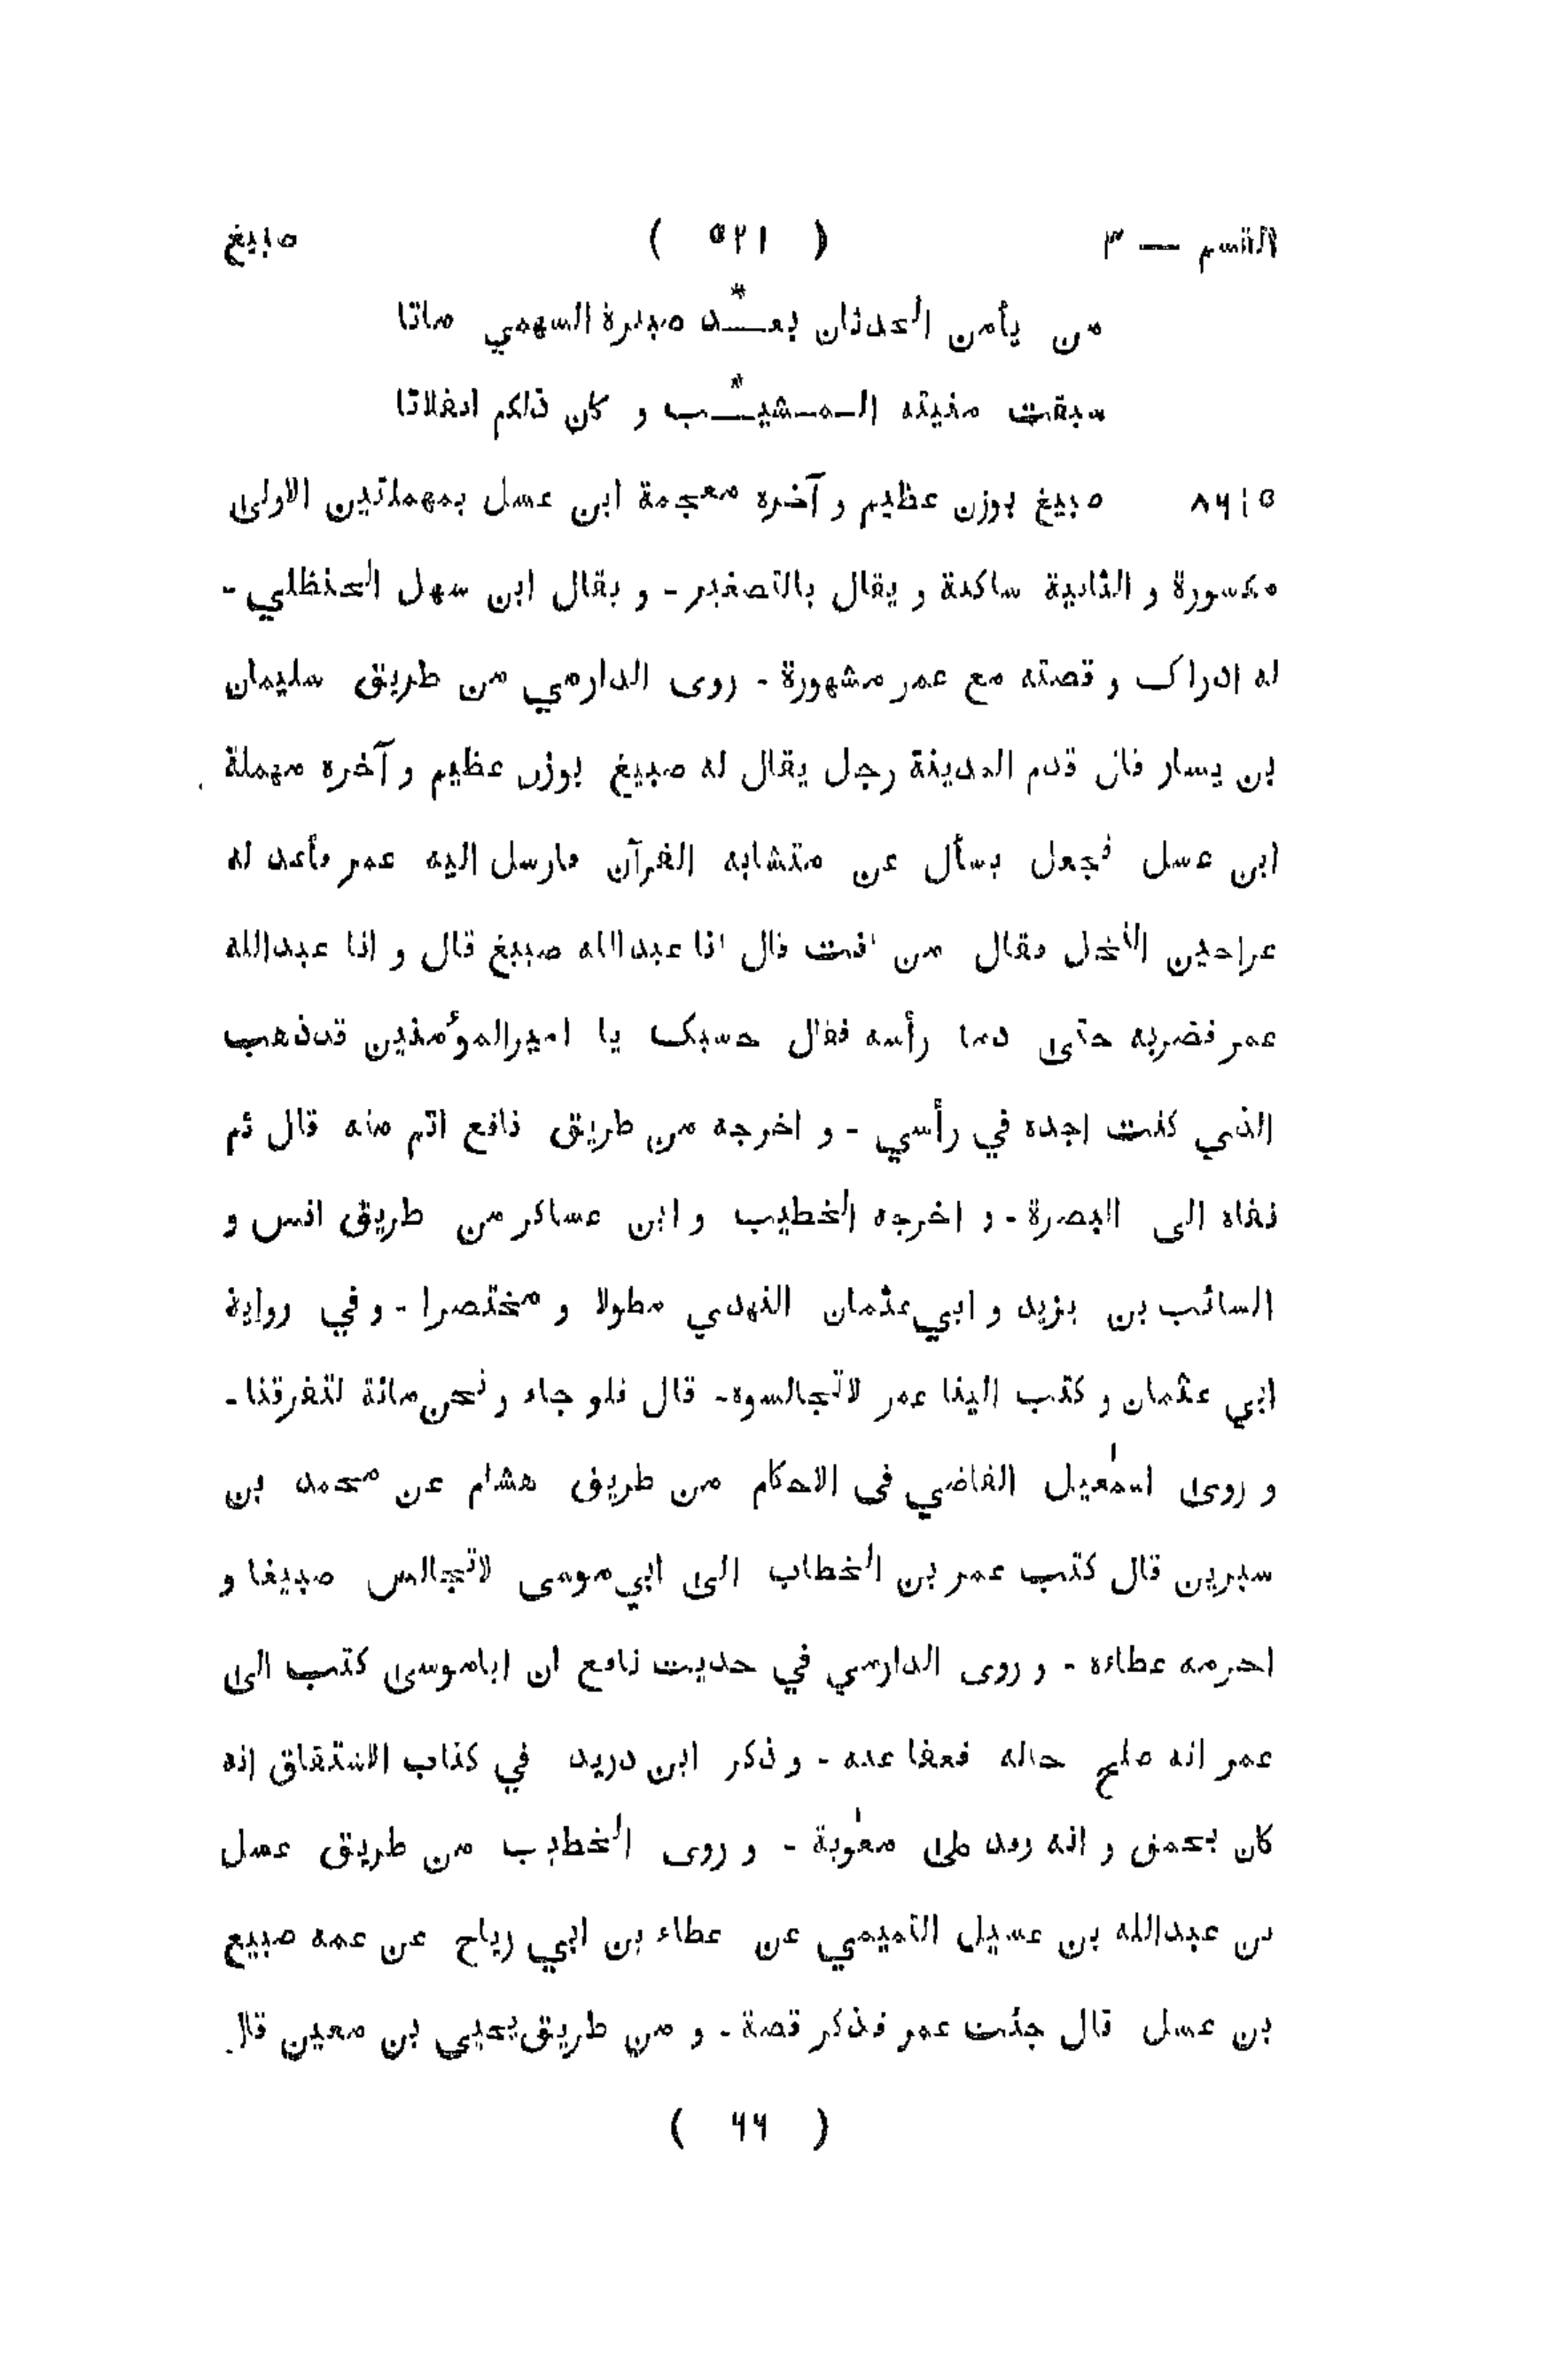 القسم — ٣ ( ٥٢١ ) صبيغ
من يأمن الحدثان بعـــد * صبيرة السهمي ماتا
سبقت منيته المـشيـــب * و كان ذلكم انفلاتا
٨٦١٥ صبيغ بوزن عظيم و آخره معجمة ابن عسل بمهملتين الاولى
مكسورة و الثانية ساكنة و يقال بالتصغير - و يقال ابن سهل الحنظلي -
له ادراك و قصته مع عمر مشهورة - روى الدارمي من طريق سليمان
بن يسار قال قدم المدينة رجل يقال له صبيغ بوزن عظيم و آخره مهملة
ابن عسل فجعل يسأل عن متشابه القرآن فارسل اليه عمر فأعد له
عراجين النخل فقال من انت قال انا عبدالله صبيغ قال و انا عبدالله
عمر فضربه حتى دما رأسه فقال حسبك يا اميرالمؤمنين قدذهب
الذي كنت اجده في رأسي - و اخرجه من طريق نافع اتم منه قال ثم
نفاه الى البصرة - و اخرجه الخطيب و ابن عساكر من طريق انس و
السائب بن يزيد و ابي عثمان النهدي مطولا و مختصرا - و في رواية
ابي عثمان و كتب الينا عمر لاتجالسوه - قال فلو جاء و نحن مائة لتفرقنا -
و روى اسمٰعيل القاضي فى الاحكام من طريق هشام عن محمد بن
سيرين قال كتب عمر بن الخطاب الى ابي موسى لاتجالس صبيغا و
احرمه عطاءه - و روى الدارمي في حديث نافع ان اباموسى كتب الى
عمر انه صلح حاله فعفا عنه - و ذكر ابن دريد في كتاب الاشتقاق انه
كان يحمق و انه وفد على معٰوية - و روى الخطيب من طريق عسل
بن عبدالله بن عسيل التميمي عن عطاء بن ابي رباح عن عمه صبيع
بن عسل قال جئت عمر فذكر قصة - و من طريق يحيى بن معين قال
( ٦٦ )